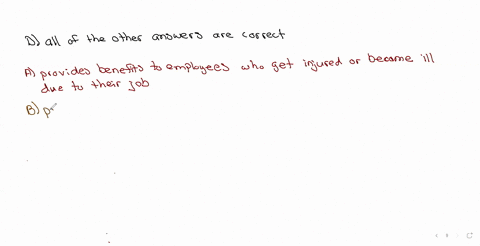 D) all of the other answers are correct
A) provides benefits to employees who get injured or become ill
due to their job
B)